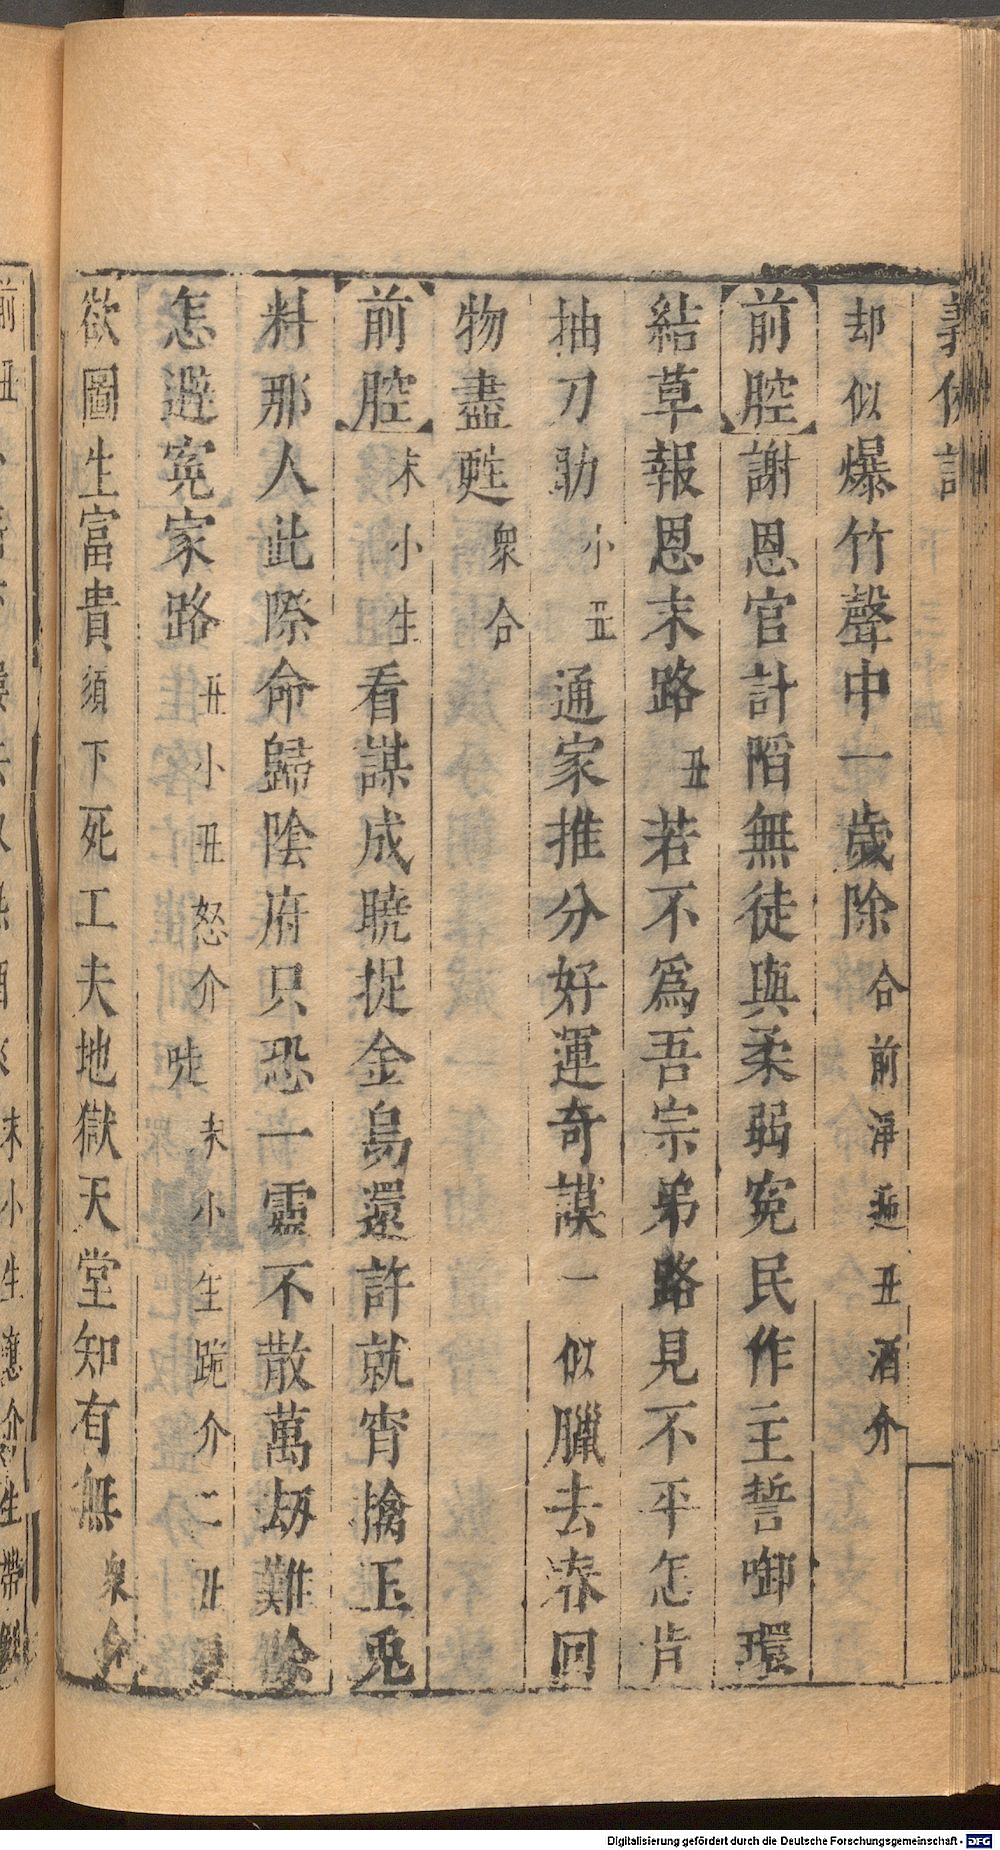 却似爆竹聲中一歲除合前淨遞丑酒介
前腔謝恩官計陷無徒與柔弱冤民作主誓啣環
結草報恩末路丑若不為吾宗弟路見不平怎肯
抽刀助小丑通家推分好運奇謀一似臘去春回
物盡甦衆合
前腔末小生看謀成曉捉金烏還許就宵擒玉兎
料那人此際命歸陰府只恐一靈不散萬劫難除
怎遲冤家路丑小丑怒介唗末小生跪介二丑
欲圖生富貴須下死工夫地獄天堂知有無衆
Digitalisierung gefördert durch die Deutsche Forschungsgemeinschaft - DFG